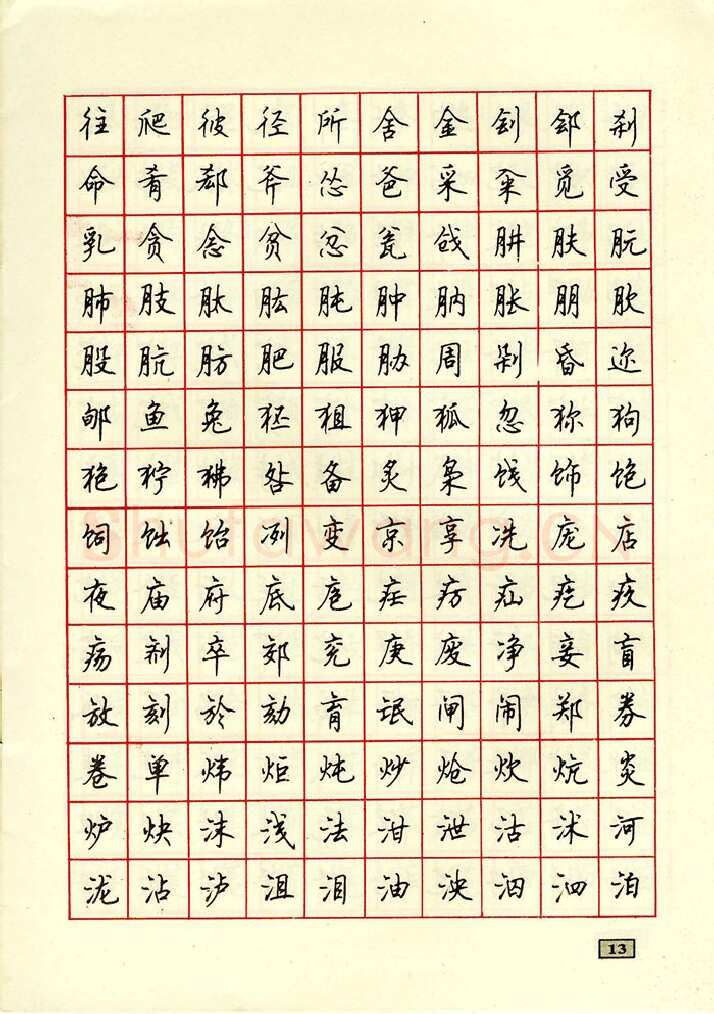 往爬彼径所舍金刽郐刹
命肴郄斧怂爸采籴觅受
乳贪念贫忿瓮戗肼肤朊
肺肢肽肱肫肿肭胀朋肷
股肮肪肥服胁周剁昏迩
郇鱼兔狉狙狎狐忽狝狗
狍狞狒咎备炙枭饯饰饱
饲蚀饴冽变京享冼庞店
夜庙府底庖疟疠疝疙疚
疡剂卒郊兖庚废净妾盲
放刻於劾育氓闸闹郑券
卷单炜炬炖炒炝炊炕炎
炉炔沫浅法泔泄沽沭河
泷沾泸沮泪油泱泅泗泊
13
Shufawang.CN